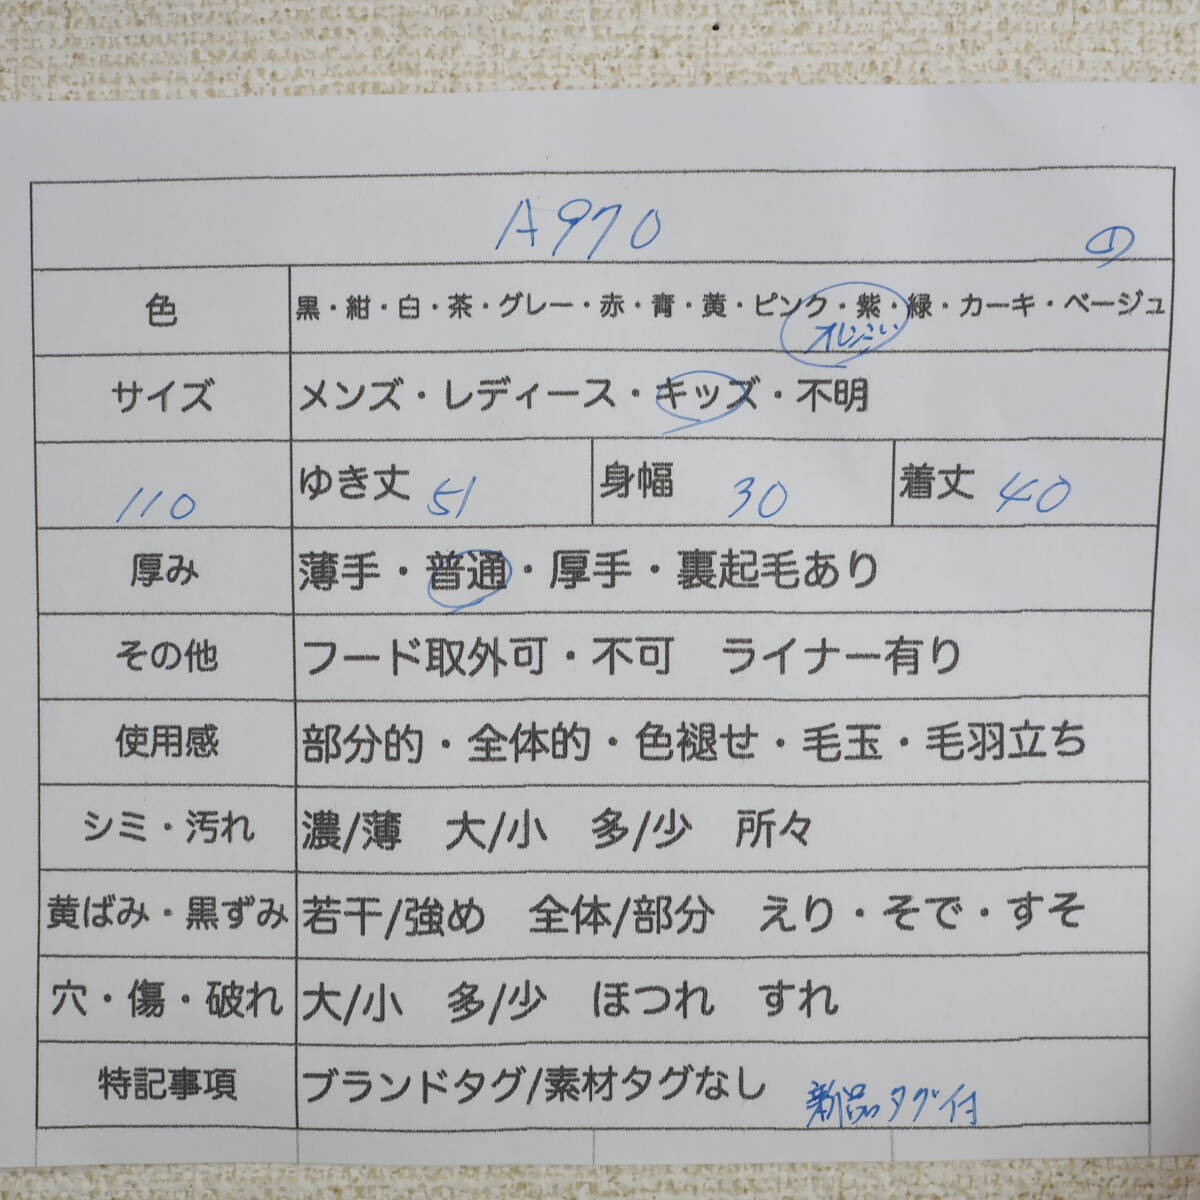 A970 の
色 黒・紺・白・茶・グレー・赤・青・黄・ピンク・紫・緑・カーキ・ベージュ
サイズ メンズ・レディース・キッズ・不明
110 ゆき丈 51 身幅 30 着丈 40
厚み 薄手・普通・厚手・裏起毛あり
その他 フード取外可・不可 ライナー有り
使用感 部分的・全体的・色褪せ・毛玉・毛羽立ち
シミ・汚れ 濃/薄 大/小 多/少 所々
黄ばみ・黒ずみ 若干/強め 全体/部分 えり・そで・すそ
穴・傷・破れ 大/小 多/少 ほつれ すれ
特記事項 ブランドタグ/素材タグなし 新品タグ付